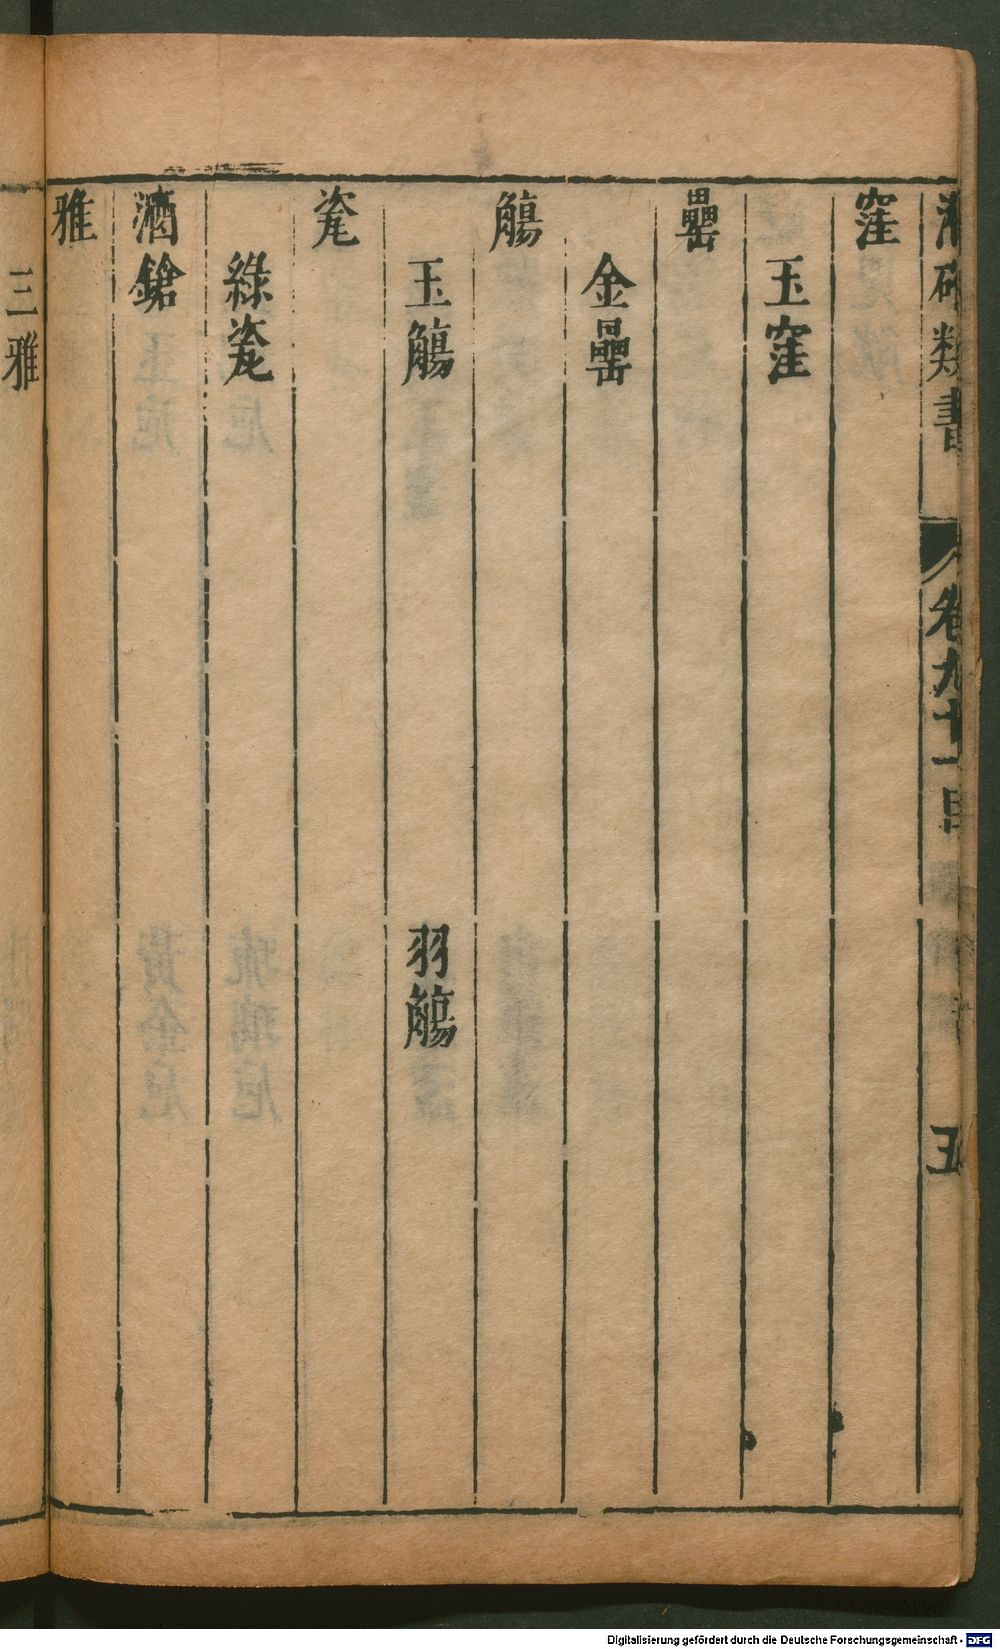 潛確類書 卷九十一目 五
窪
玉窪
罍
金罍
觴
玉觴 羽觴
瓷
綠瓷
酒鎗
雅
三雅
Digitalisierung gefördert durch die Deutsche Forschungsgemeinschaft - DFG